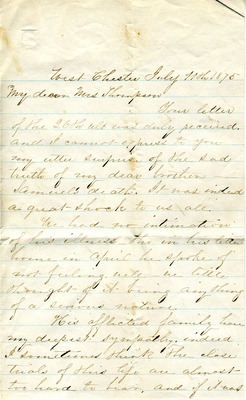 West Chester July 11th 1875
My dear Mrs Thompson
Your letter
of the 26th ult was duly received
and I cannot express to you
my utter surprise of the sad
truth of my dear brother
Samuel's death. It was indeed
a great shock to us all.
We had no intimation
of his illness in his letter
home in April he spoke of
not feeling well we little
thought of it being anything
of a serious nature.
His afflicted family have
my deepest sympathy, indeed
I sometimes think the close
trials of this life are almost
too hard to bear, and if it was